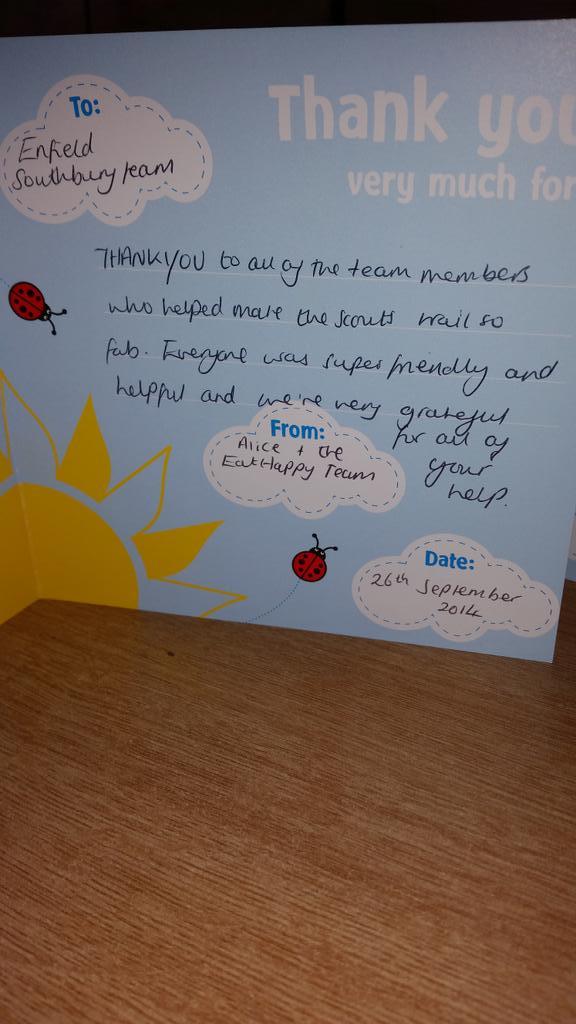 To:
Enfield
Southbury team
Thank you
very much for
THANKYOU to all of the team members
who helped make the scouts trail so
fab. Everyone was super friendly and
helpful and we're very grateful
for all of
your
help.
From:
Alice + the
EatHappy Team
Date:
26th September
2014